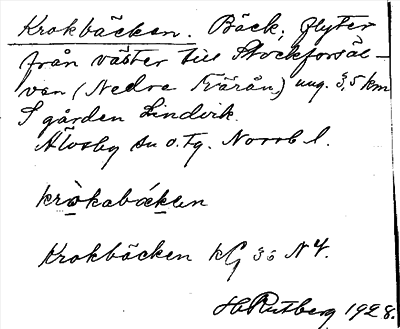 Krokbäcken. Bäck, flyter
från väster till Stockforsäl-
ven (Nedre Tvärån) ung. 3,5 km
S gården Lindvik.
Älvsby sn o. tg. Norrb l.
kròkabäcken
Krokbäcken kG 36 N 4.
H Rutberg 1928.